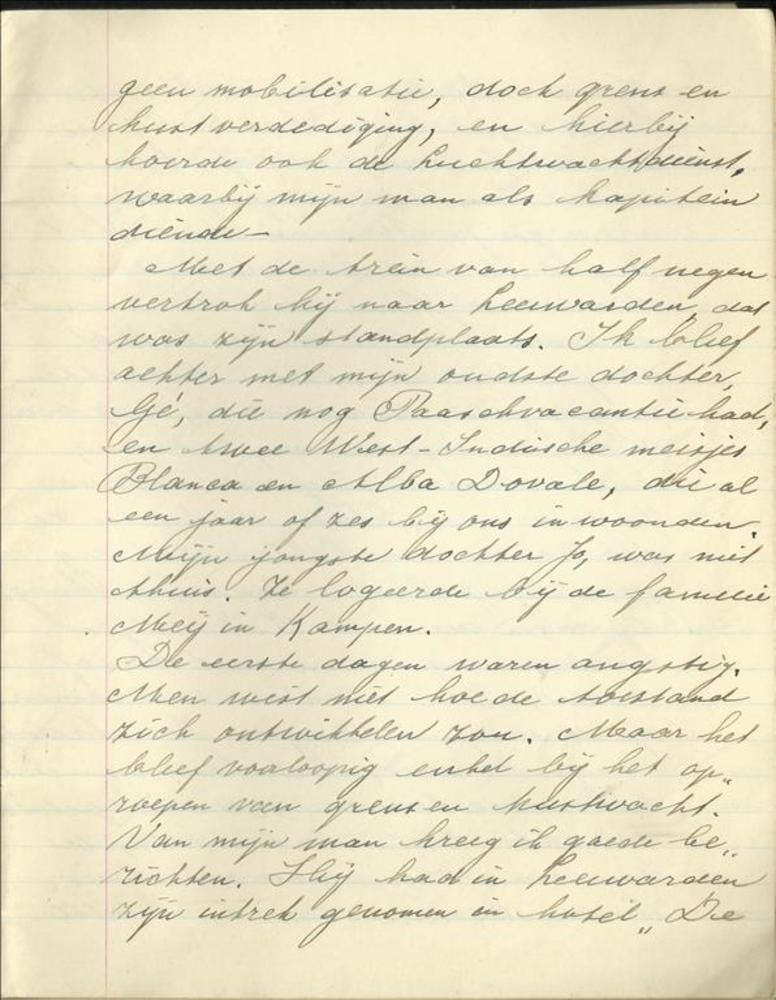 geen mobilisatie, doch grens en
kust verdediging, en hierbij
hoorde ook de Luchtwachtdienst,
waarbij mijn man als kapitein
diende –
Met de trein van half negen
vertrok hij naar Leeuwarden, dat
was zijn standplaats. Ik bleef
achter met mijn oudste dochter,
Gé, die nog Paaschvacantie had,
en twee West-Indische meisjes
Blanca en Alba Dovale, die al
een jaar of zes bij ons inwoonden.
Mijn jongste dochter Jo, was niet
thuis. Ze logeerde bij de familie
Meij in Kampen.
De eerste dagen waren angstig.
Men wist niet hoe de toestand
zich ontwikkelen zou. Maar het
bleef voorloopig enkel bij het op„
roepen van grens en kustwacht.
Van mijn man kreeg ik goede be„
richten. Hij had in Leeuwarden
zijn intrek genomen in hotel „De